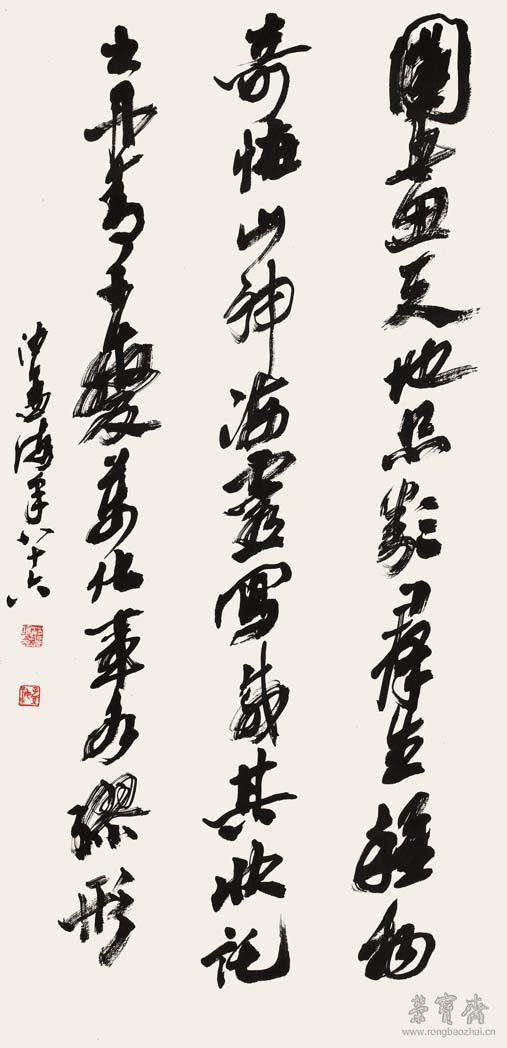 圖畫天地品類羣生雜物
奇恠山神海靈寫載其狀託
之丹青千變萬化事各繆形
沙孟海年八十六
榮寶齋
www.rongbaozhai.cn